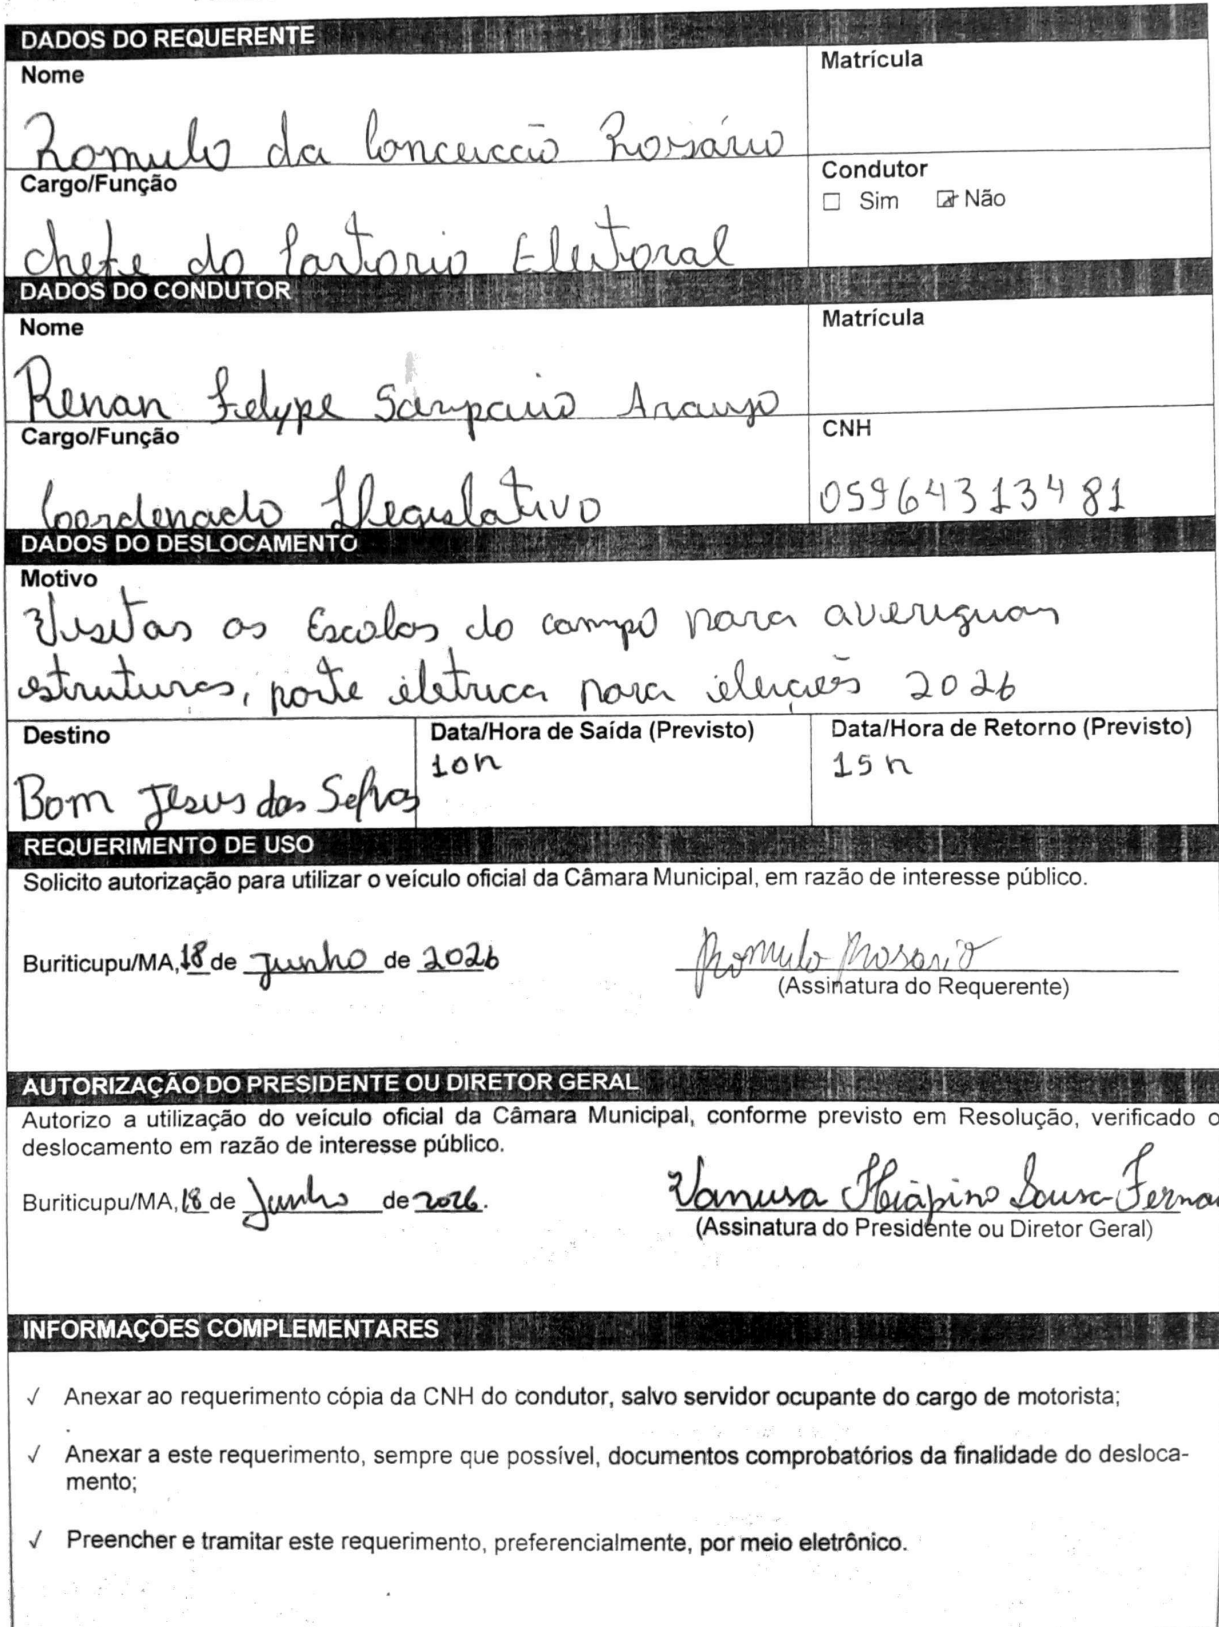 DADOS DO REQUERENTE
Nome
Matrícula
Romulo da Conceicão Rosário
Cargo/Função
Condutor
☐ Sim ☑ Não
chefe do Cartorio Eleitoral
DADOS DO CONDUTOR
Nome
Matrícula
Renan Felype Sampaio Araujo
Cargo/Função
CNH
Coordenado Llegislativo
05964313481
DADOS DO DESLOCAMENTO
Motivo
Visitas as Escolas do campo para averiguar
estruturas, parte eletrica para eleições 2026
Destino
Data/Hora de Saída (Previsto)
Data/Hora de Retorno (Previsto)
10h
15h
Bom Jesus das Selvas
REQUERIMENTO DE USO
Solicito autorização para utilizar o veículo oficial da Câmara Municipal, em razão de interesse público.
Buriticupu/MA, 18 de Junho de 2026
Romulo Rosario
(Assinatura do Requerente)
AUTORIZAÇÃO DO PRESIDENTE OU DIRETOR GERAL
Autorizo a utilização do veículo oficial da Câmara Municipal, conforme previsto em Resolução, verificado o
deslocamento em razão de interesse público.
Buriticupu/MA, 18 de Junho de 2026.
Vanusa Sousa
(Assinatura do Presidente ou Diretor Geral)
INFORMAÇÕES COMPLEMENTARES
√ Anexar ao requerimento cópia da CNH do condutor, salvo servidor ocupante do cargo de motorista;
√ Anexar a este requerimento, sempre que possível, documentos comprobatórios da finalidade do desloca-
mento;
√ Preencher e tramitar este requerimento, preferencialmente, por meio eletrônico.